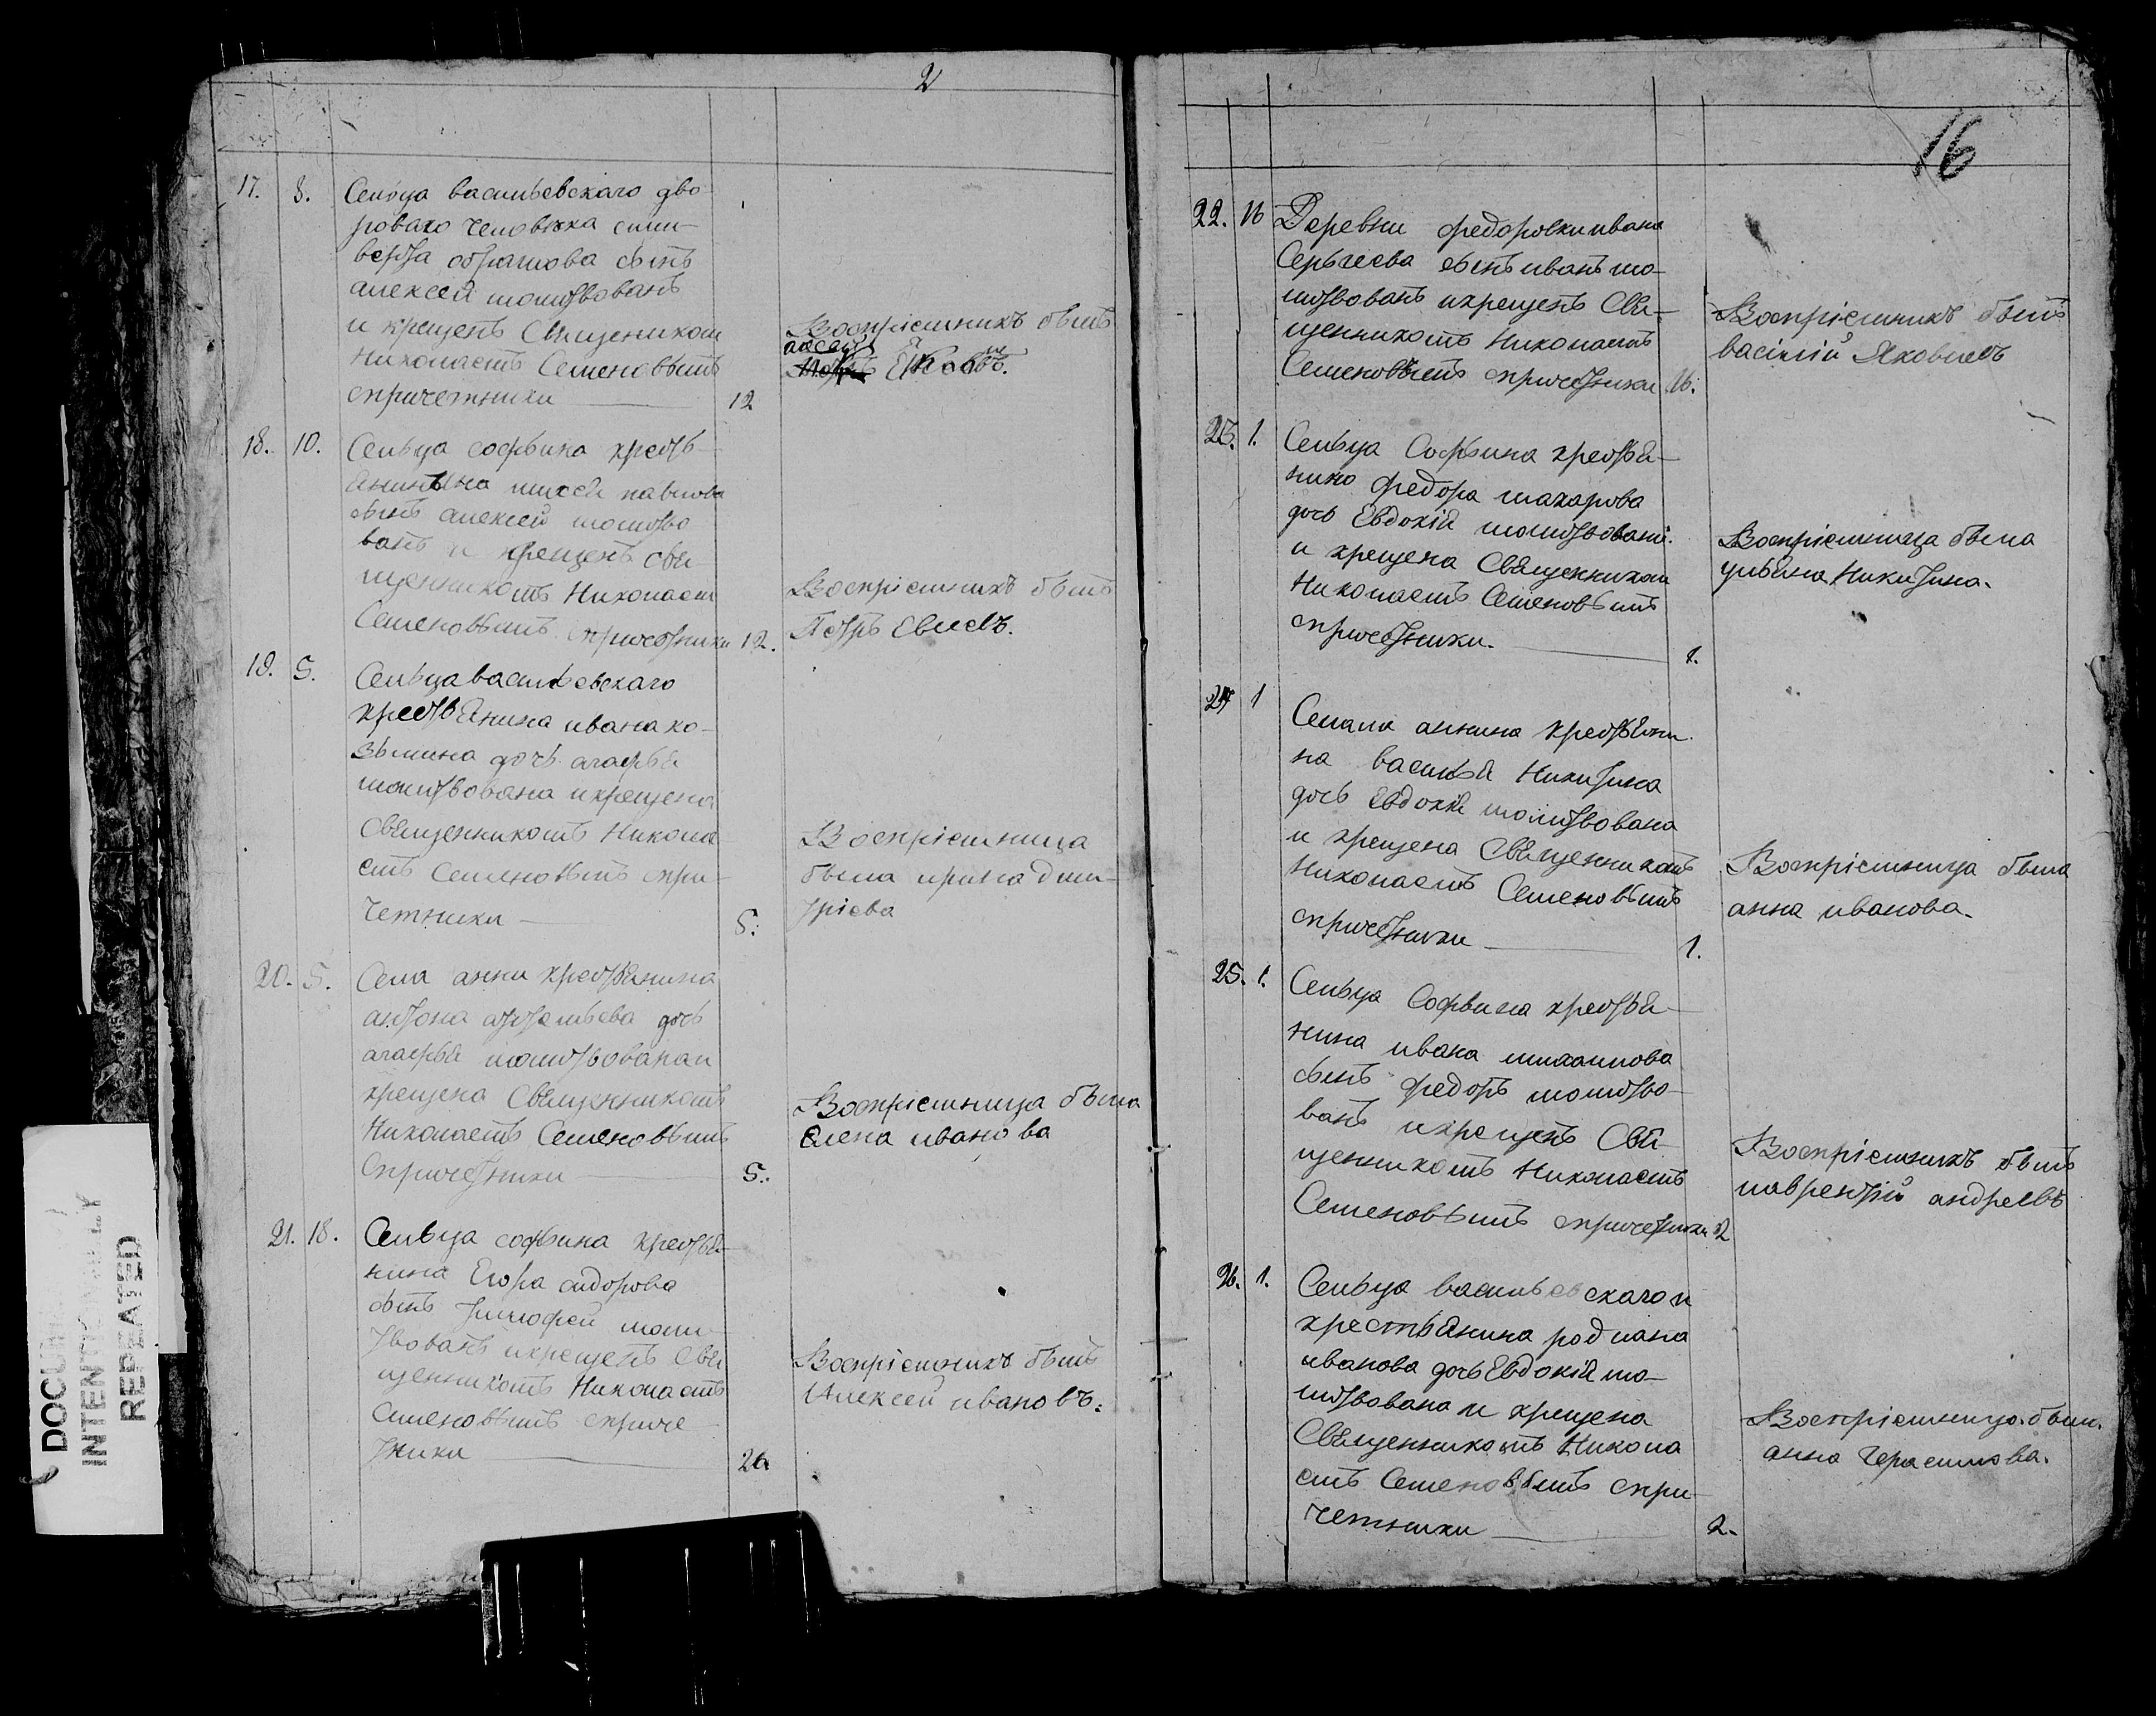 2
17. 8. Сельца васильевскаго дво
роваго человѣка сили-
верста абрамова сынъ
алексей молитвованъ
и крещенъ Священником
Николаемъ Семеновымъ
спричетники 12
Воспріемникъ былъ
алексей
18. 10. Сельца софьина кресть-
янина павлова
сынъ алексей молитво
ванъ и крещенъ свя-
щенникомъ Николаем
Семеновымъ спричетники 12.
Воспріемникъ былъ
Петръ Евсеевъ.
19. 5. Сельца васильевскаго
крестьянина ивана ко-
зьмина дочь агафья
молитвована икрещена
священникомъ Никола
емъ Семеновымъ спри-
четники 5.
Воспріемница
была ирина дми-
тріева
20. 5. Села анны крестьянина
антона дочь
агафья молитвована и
крещена Священникомъ
Николаемъ Семеновымъ
спричетники 5.
Воспріемница была
Елена иванова
21. 18. Сельца софьина крестья-
нина Егора сидорова
сынъ тимофей моли-
твованъ икрещенъ свя
щенникомъ Николаемъ
Семеновымъ сприче
тники 20
Воспріемникъ былъ
Алексей ивановъ.
16
22. 16 Деревни федоровки ивана
Сергеева сынъ иванъ мо-
литвованъ икрещенъ Свя-
щенникомъ Николаемъ
Семеновымъ спричетники 16.
Воспріемникъ былъ
василий Яковлевъ
23. 1. Сельца Софьина крестья-
нина федора макарова
дочь Евдокія молитвована
и крещена Священником
Николаемъ Семеновымъ
спричетники. 1.
Воспріемница была
ульяна Никитина.
24 1 Села анны крестьяни
на василья Никитина
дочь Евдокія молитвована
и крещена Священникомъ
Николаемъ Семеновымъ
спричетники 1.
Воспріемница была
анна иванова.
25. 1. Сельца Софьина крестья-
нина ивана михаилова
сынъ федоръ молитво-
ванъ икрещенъ Свя-
щенникомъ Николаемъ
Семеновымъ спричетники 2
Воспріемникъ былъ
лаврентій андреевъ
26. 1. Сельца васильевскаго
крестьянина родиана
иванова дочь Евдокія мо-
литвована и крещена
Священникомъ Никола
емъ Семеновымъ спри-
четники 2.
Воспріемница был.
анна Герасимова.
DOCU
INTENT
REPEATED